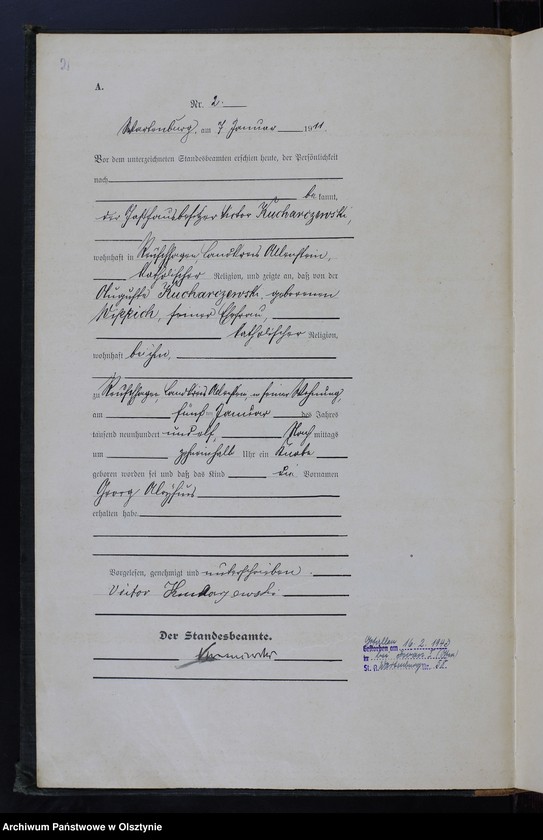 2.
A.
Nr. 2.
Wartenburg, am 7 Januar 1911.
Vor dem unterzeichneten Standesbeamten erschien heute, der Persönlichkeit
nach
be kannt,
der Gasthausbesitzer Victor Kucharczewski,
wohnhaft in Landkreis Allenstein,
katholischer Religion, und zeigte an, daß von der
Auguste Kucharczewski geborenen
Wippich, seiner Ehefrau,
katholischer Religion,
wohnhaft bei ihm,
zu Landkreis Allenstein, in seiner Wohnung,
am fünf Januar des Jahres
tausend neunhundert und elf, Nach mittags
um Uhr ein Knabe
geboren worden sei und daß das Kind die Vornamen
Georg Aloysius
erhalten habe.
Vorgelesen, genehmigt und unterschrieben.
Victor Kucharzewski
Der Standesbeamte.
Gefallen
Gestorben am 16.2.1943
in bei
St. A. Wartenburg Nr.
Archiwum Państwowe w Olsztynie